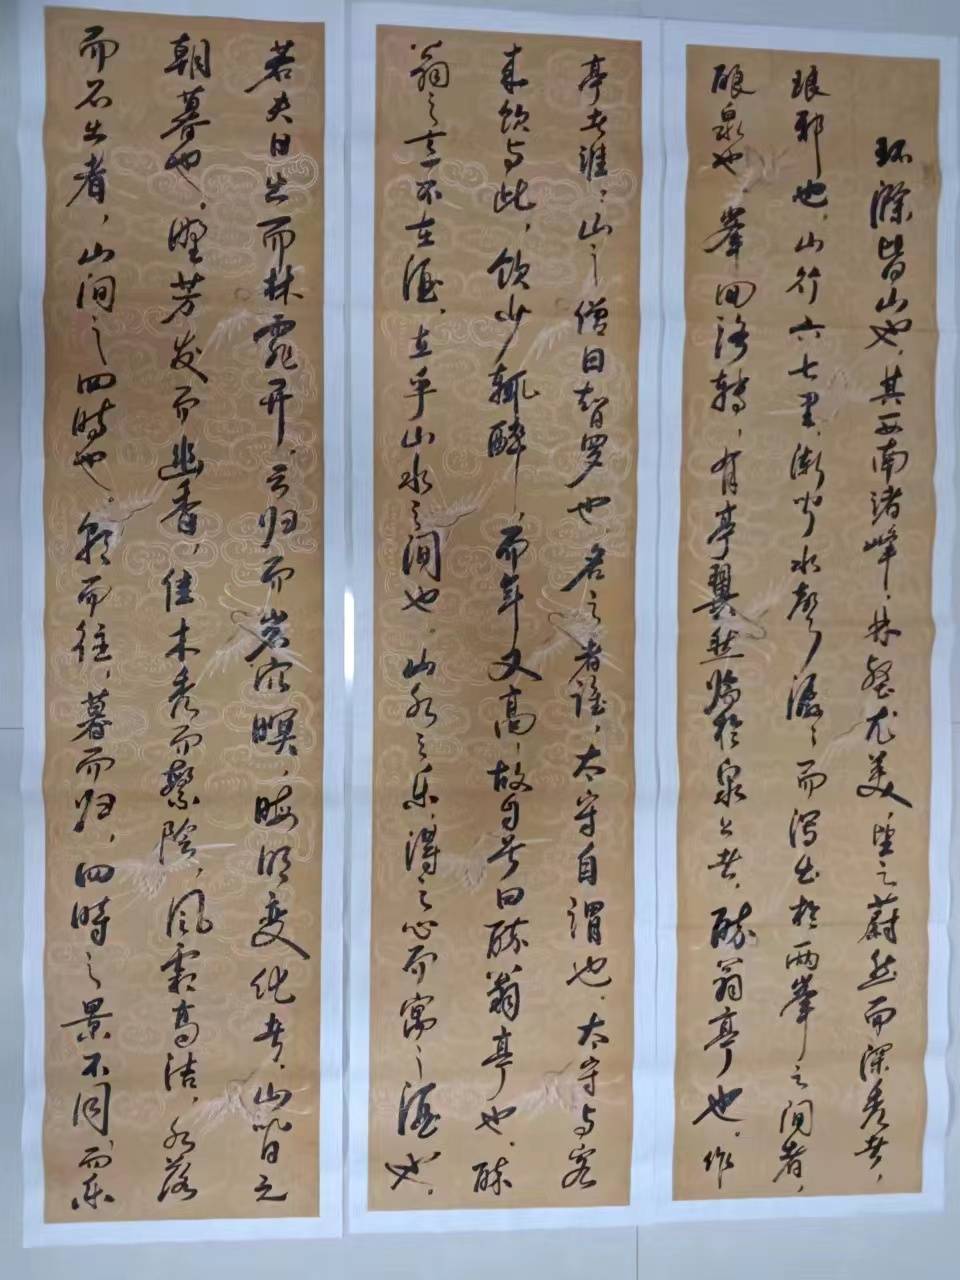 环滁皆山也，其西南诸峰，林壑尤美，望之蔚然而深秀者，
琅邪也，山行六七里，渐闻水声潺潺而泻出于两峰之间者，
酿泉也，峰回路转，有亭翼然临于泉上者，醉翁亭也，作
亭者谁：山之僧曰智罗也，名之者谁，太守自谓也，太守与客
来饮与此，饮少辄醉，而年又高，故自号曰醉翁亭也，醉
翁之意不在酒，在乎山水之间也，山水之乐，得之心而寓之酒也，
若夫日出而林霏开，云归而岩穴暝，晦明变化者，山间之
朝暮也，野芳发而幽香，佳木秀而繁阴，风霜高洁，水落
而石出者，山间之四時也，朝而往，暮而归，四時之景不同，而乐